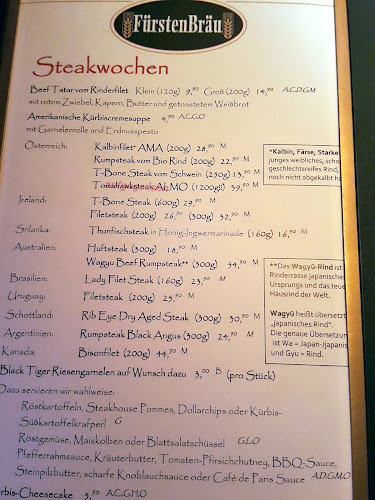 FürstenBräu
Steakwochen
Beef Tatar vom Rinderfilet Klein (120g) 9,90 Groß (200g) 14,90 A,C,D,G,M
mit rotem Zwiebel, Kapern, Butter und getoastetem Weißbrot
Amerikanische Kürbiscremesuppe 4,90 A,C,G,O
mit Garnelenrolle und Erdnusspesto
Österreich: Kalbinfilet* AMA (200g) 28,90 M
Rumpsteak vom Bio Rind (200g) 22,90 M
T-Bone Steak vom Schwein (250g) 13,90 M
Tomahawksteak ALMO (1200g!) 39,90 M
Irland: T-Bone Steak (600g) 29,90 M
Filetsteak (200g) 26,90 (300g) 32,90 M
Srilanka: Thunfischsteak in Honig-Ingwermarinade (160g) 16,90 M
Australien: Huftsteak (300g) 18,90 M
Wagyu Beef Rumpsteak** (300g) 54,90 M
Brasilien: Lady Filet Steak (160g) 23,90 M
Uruguay: Filetsteak (200g) 25,90 M
Schottland: Rib Eye Dry Aged Steak (300g) 30,90 M
Argentinien: Rumpsteak Black Angus (300g) 24,90 M
Kanada: Bisonfilet (200g) 44,90 M
Black Tiger Riesengarnelen auf Wunsch dazu 3,00 B (pro Stück)
Dazu servieren wir wahlweise:
Röstkartoffeln, Steakhouse Pommes, Dollarchips oder Kürbis-
Süßkartoffelkrapferl G
Röstgemüse, Maiskolben oder Blattsalatschüssel G,L,O
Pfefferrahmsauce, Kräuterbutter, Tomaten-Pfirsichchutney, BBQ-Sauce,
Steinpilzbutter, scharfe Knoblauchsauce oder Café de Paris Sauce A,D,G,M,O
rbis-Cheesecake 5,90 A,C,G,H,O
*Kalbin, Färse, Starke
junges weibliches, scho
geschlechtsreifes Rind,
noch nicht abgekalbt ha
**Das Wagyū-Rind ist
Rinderrasse japanischen
Ursprungs und das teue
Hausrind der Welt.
Wagyū heißt übersetzt
„japanisches Rind“.
Die genaue Übersetzun
ist Wa = Japan-/japanis
und Gyu = Rind.